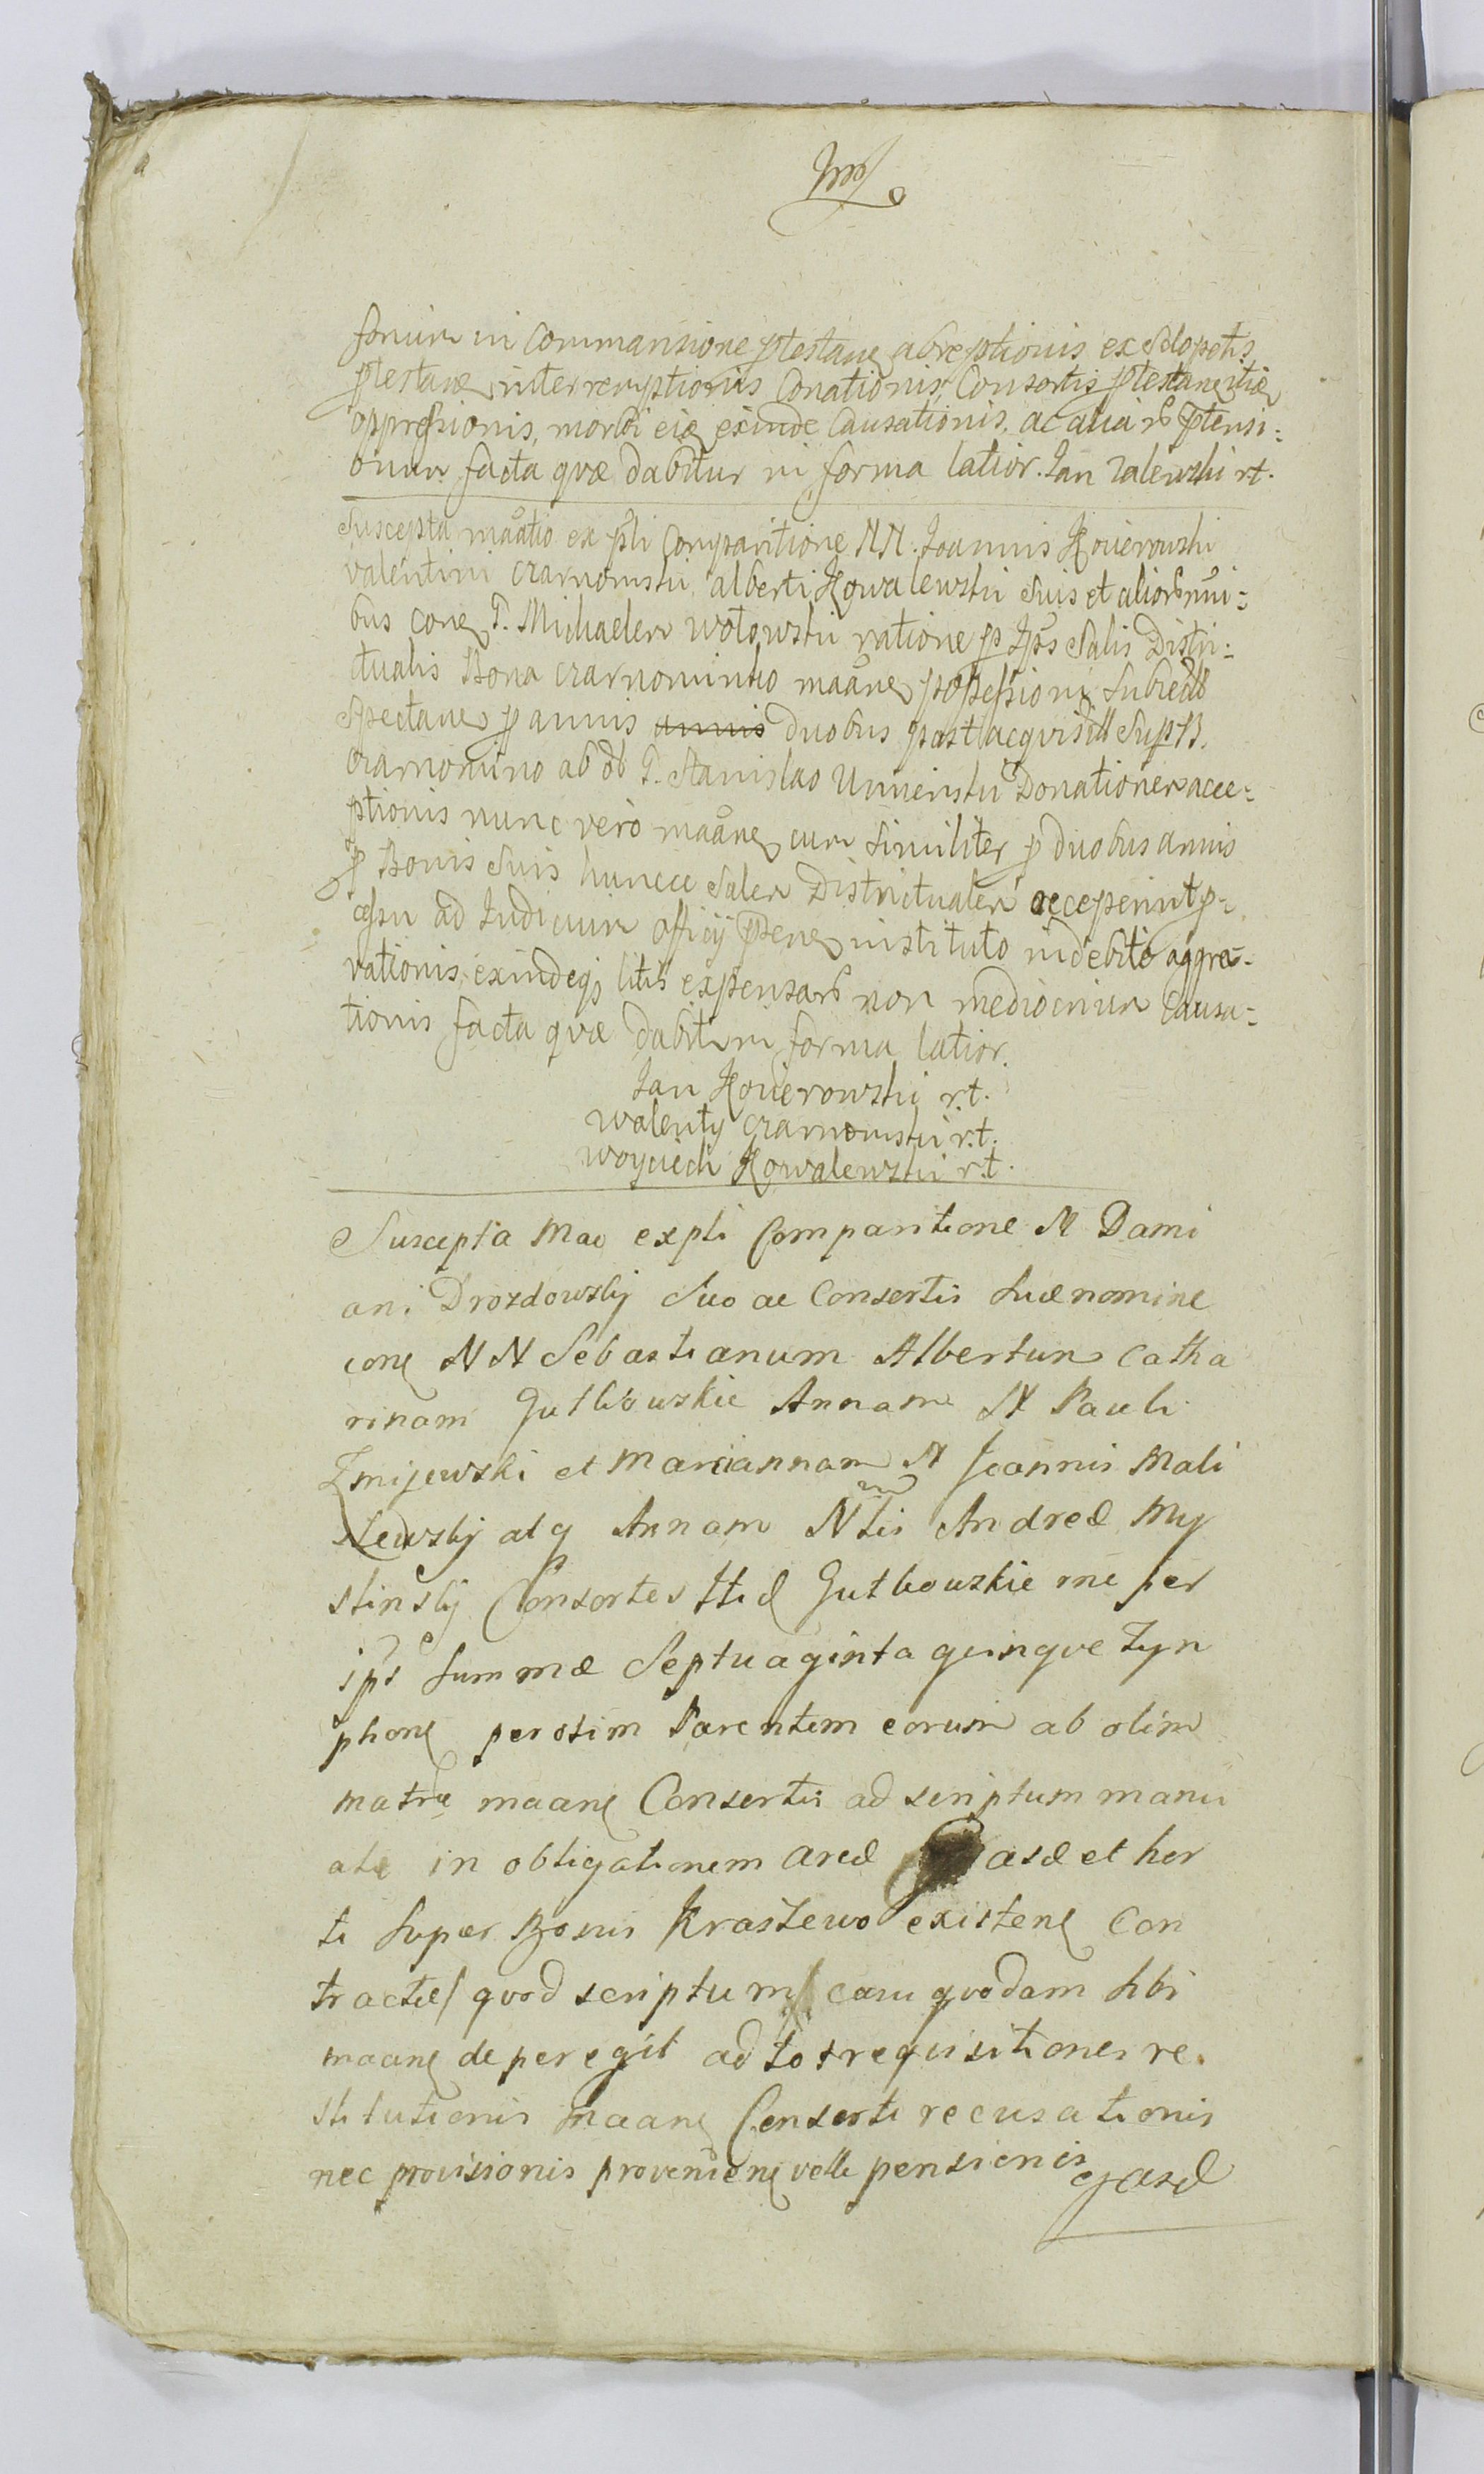 sonum in Commansione ptestane abreptionis ex Sclopetis
ptestane interremptionis Conationis, Consortis ptestane itie
oppressionis, morbi eie exinde Causationis, ac aliarb ptensi:
onum facta qvæ dabitur in forma latior. Jan Zalewski rt.
Suscepta maatio ex pti Comparitione NN. Joannis Kouerowski
Valentini Czarnomski, Alberti Kowalewski Suis et aliorb nni:
bus cone P. Michaelem Wołowski ratione p Ips Salis Distri:
ctualis Bona Czarnominko maane possessioni Subiectb
Spectane p annis annis duobus post acqvisitt Sup B.
Czarnomino ab ob P. Stanislao Umienski Donationem acce:
ptionis nunc vero maane cum Similiter p duobus annis
p Bonis Suis huncce Salem Districtualem acceperint p:
cessu ad Judicium officij ptene instituto indebito aggra:
vationis, exindeqz litis expensarb non mediocrium Causa:
tionis facta qvæ dabit in forma latior.
Jan Kouerowski r.t.
Walenty Czarnomski r.t.
Woyciech Kowalewski r.t.
Suscepta Mao ex pti Comparitione N Dami
ani Drozdowskij Suo ac Consortis Suæ nomine
cone NN Sebastianum Albertum Catha
rinam Gutkowskie Annam N Pauli
Zmijewski et Mariannam N Joannis Mali
szewskij atq Annam Ntis Andreæ My
stinskij Consortes Itid Gutkowskie me per
ips Summæ Septuaginta qvinqve Tyn
phone per olim Parentem eorum ab olim
matre maane Consortis ad scriptum manu
ate in obligationem areæ asæ et hor
ti Super Bonis Kraszewo existene Con
tractæ / qvod scriptum / casu qvodam sibi
maane deperegit ad tot reqvisitiones re
stitutionis maane Consorti recusationis
nec provisionis proveniene velle pensionis
easd